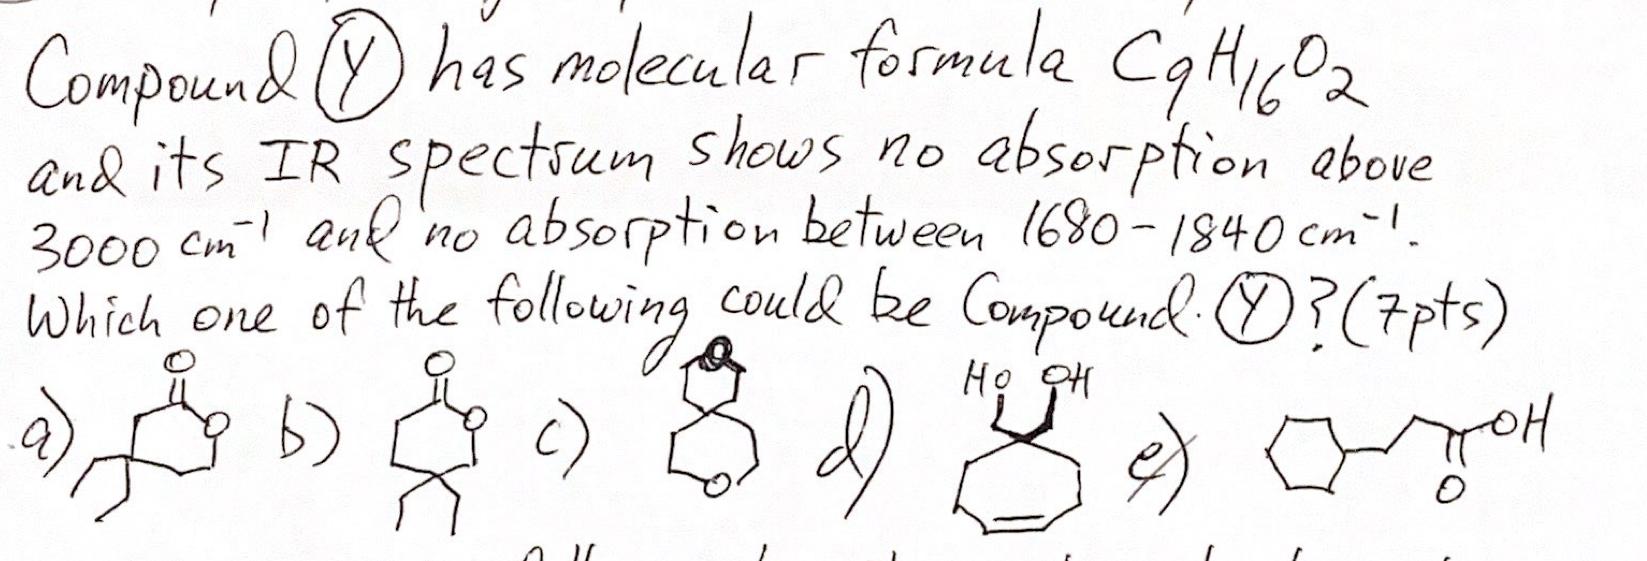 Compound Ⓨ has molecular formula C9H16O2
and its IR spectrum shows no absorption above
3000 cm⁻¹ and no absorption between 1680-1840 cm⁻¹.
Which one of the following could be Compound Ⓨ? (7pts)
a) O O b) O O c) O O d) HO OH e) OH O